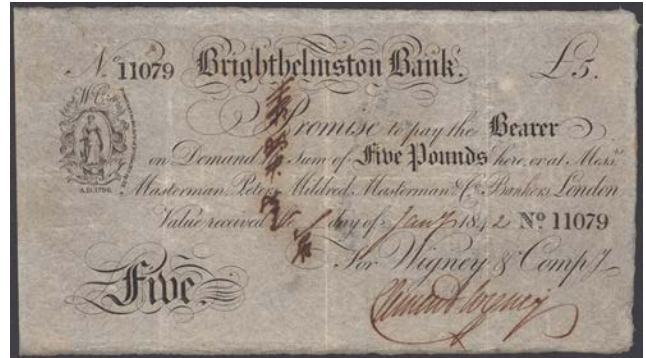 No. 11079 Brighthelmston Bank. £5.
A.D. 1796.
I Promise to pay the Bearer
on Demand the Sum of Five Pounds here, or at Mess.rs
Masterman, Peters, Mildred, Masterman & Co. Bankers London
Value received day of Jany. 1842 No. 11079
For Wigney & Compy.
Five